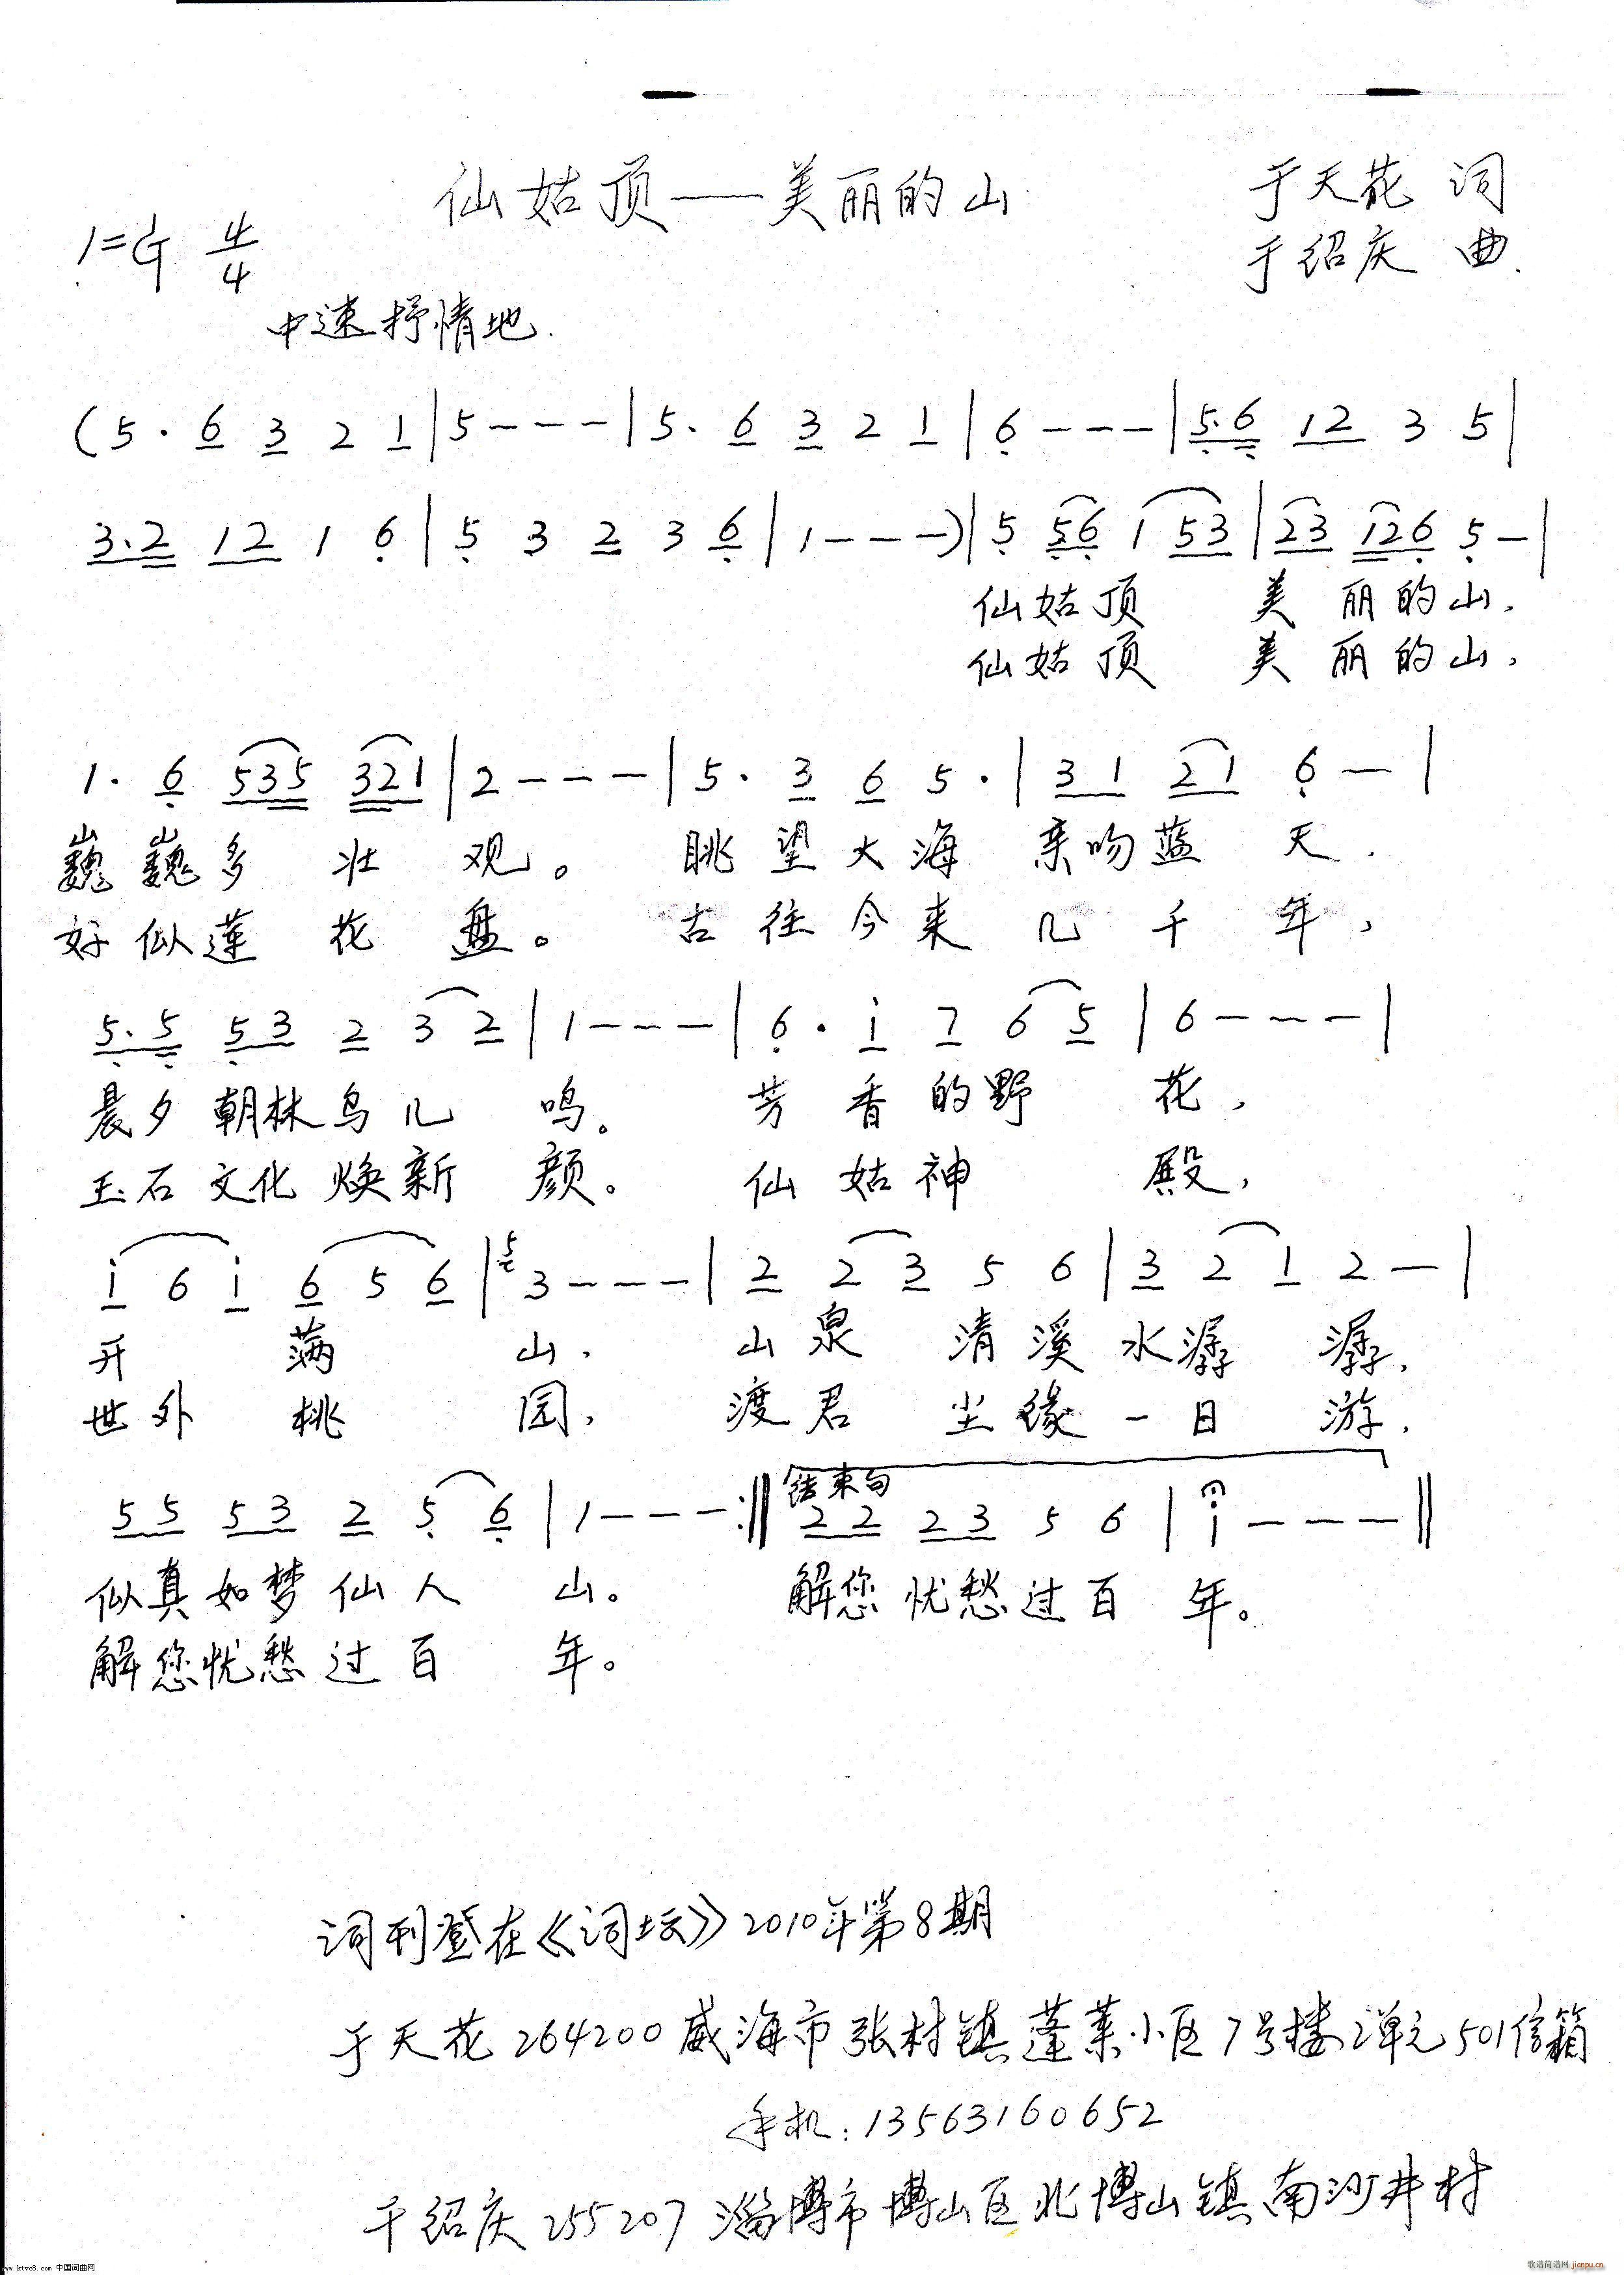 仙姑顶——美丽的山
于天花 词
1=G 4/4
于绍庆 曲
中速抒情地.
(5· 6 3 2 1|5---|5· 6 3 2 1|6---|5·6 12 3 5|
3·2 12 1 6|5 3 2 3 6|1---)|5 56 1 53|23 126 5-|
仙姑顶 美丽的山.
仙姑顶 美丽的山,
1· 6 535 321|2---|5· 3 6 5·|31 21 6-|
巍巍多壮观。 眺望大海亲吻蓝天.
好似莲花盘。 古往今来几千年,
5·5 53 2 3 2|1---|6· i 7 6 5|6---|
晨夕朝林鸟儿鸣。 芳香的野花,
玉石文化焕新颜。 仙姑神殿,
i 6 i 6 5 6|5 3---|2 2 3 5 6|3 2 1 2-|
开满山. 山泉清溪水潺潺,
世外桃园, 渡君尘缘一日游.
结束句
55 53 2 5 6|1---:‖22 23 5 6|i---‖
似真如梦仙人山。 解您忧愁过百年。
解您忧愁过百年。
词刊登在《词坛》2010年第8期
于天花 264200 威海市张村镇蓬莱小区7号楼2单元501信箱
手机:13563160652
于绍庆 255207 淄博市博山区北博山镇南沙井村
www.ktvc8.com 中国词曲网
歌谱简谱网 jianpu.cn